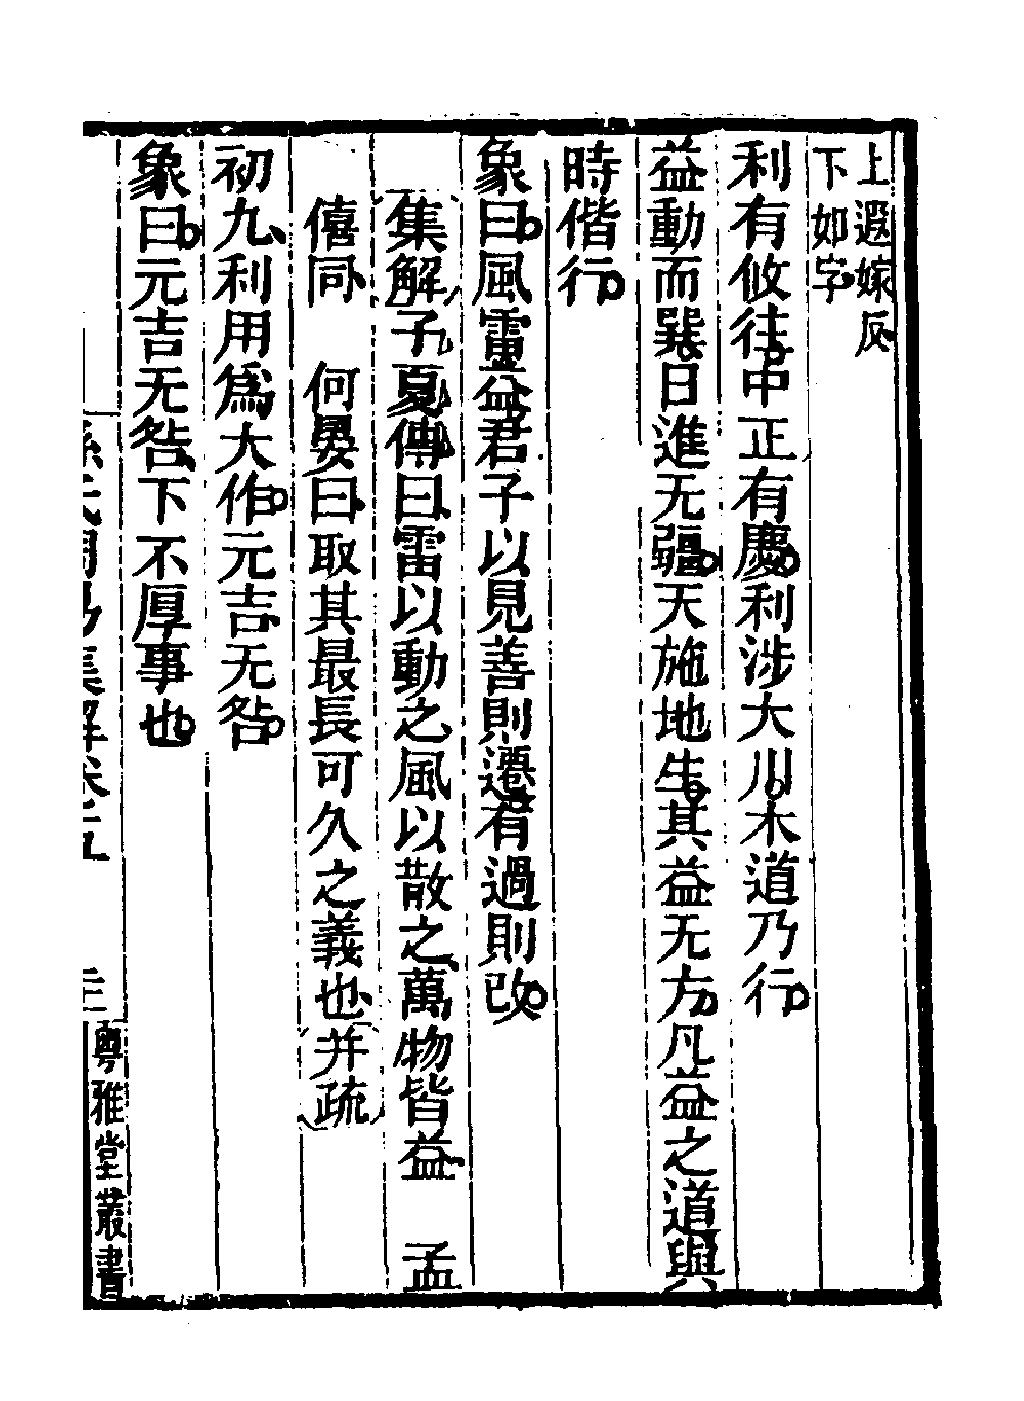 上遐嫁反
下如字
利有攸往中正有慶利涉大川木道乃行
益動而巽日進无疆天施地生其益无方凡益之道與
時偕行
象曰風雷益君子以見善則遷有過則改
集解子夏傳曰雷以動之風以散之萬物皆益　孟
僖同　何晏曰取其最長可久之義也并疏
初九利用爲大作元吉无咎
象曰元吉无咎下不厚事也
孫氏周易集解卷五
粵雅堂叢書